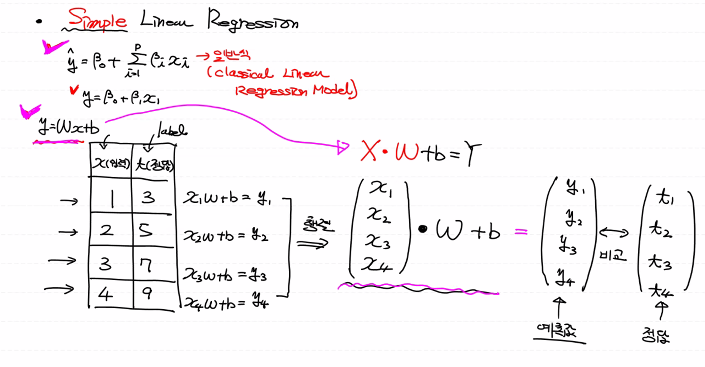 • Simple Linear Regression
ŷ = β₀ + Σᵢ₌₁ᵖ βᵢxᵢ → 일반식
(Classical Linear
Regression Model)
y = β₀ + β₁x₁
y = Wx+b
label
x(입력) t(정답)
1 3
2 5
3 7
4 9
x₁w+b = y₁
x₂w+b = y₂
x₃w+b = y₃
x₄w+b = y₄
행렬
⇒
X•W+b = Y
(x₁ x₂ x₃ x₄) • W + b = (y₁ y₂ y₃ y₄) ↔ (t₁ t₂ t₃ t₄)
비교
예측값 정답